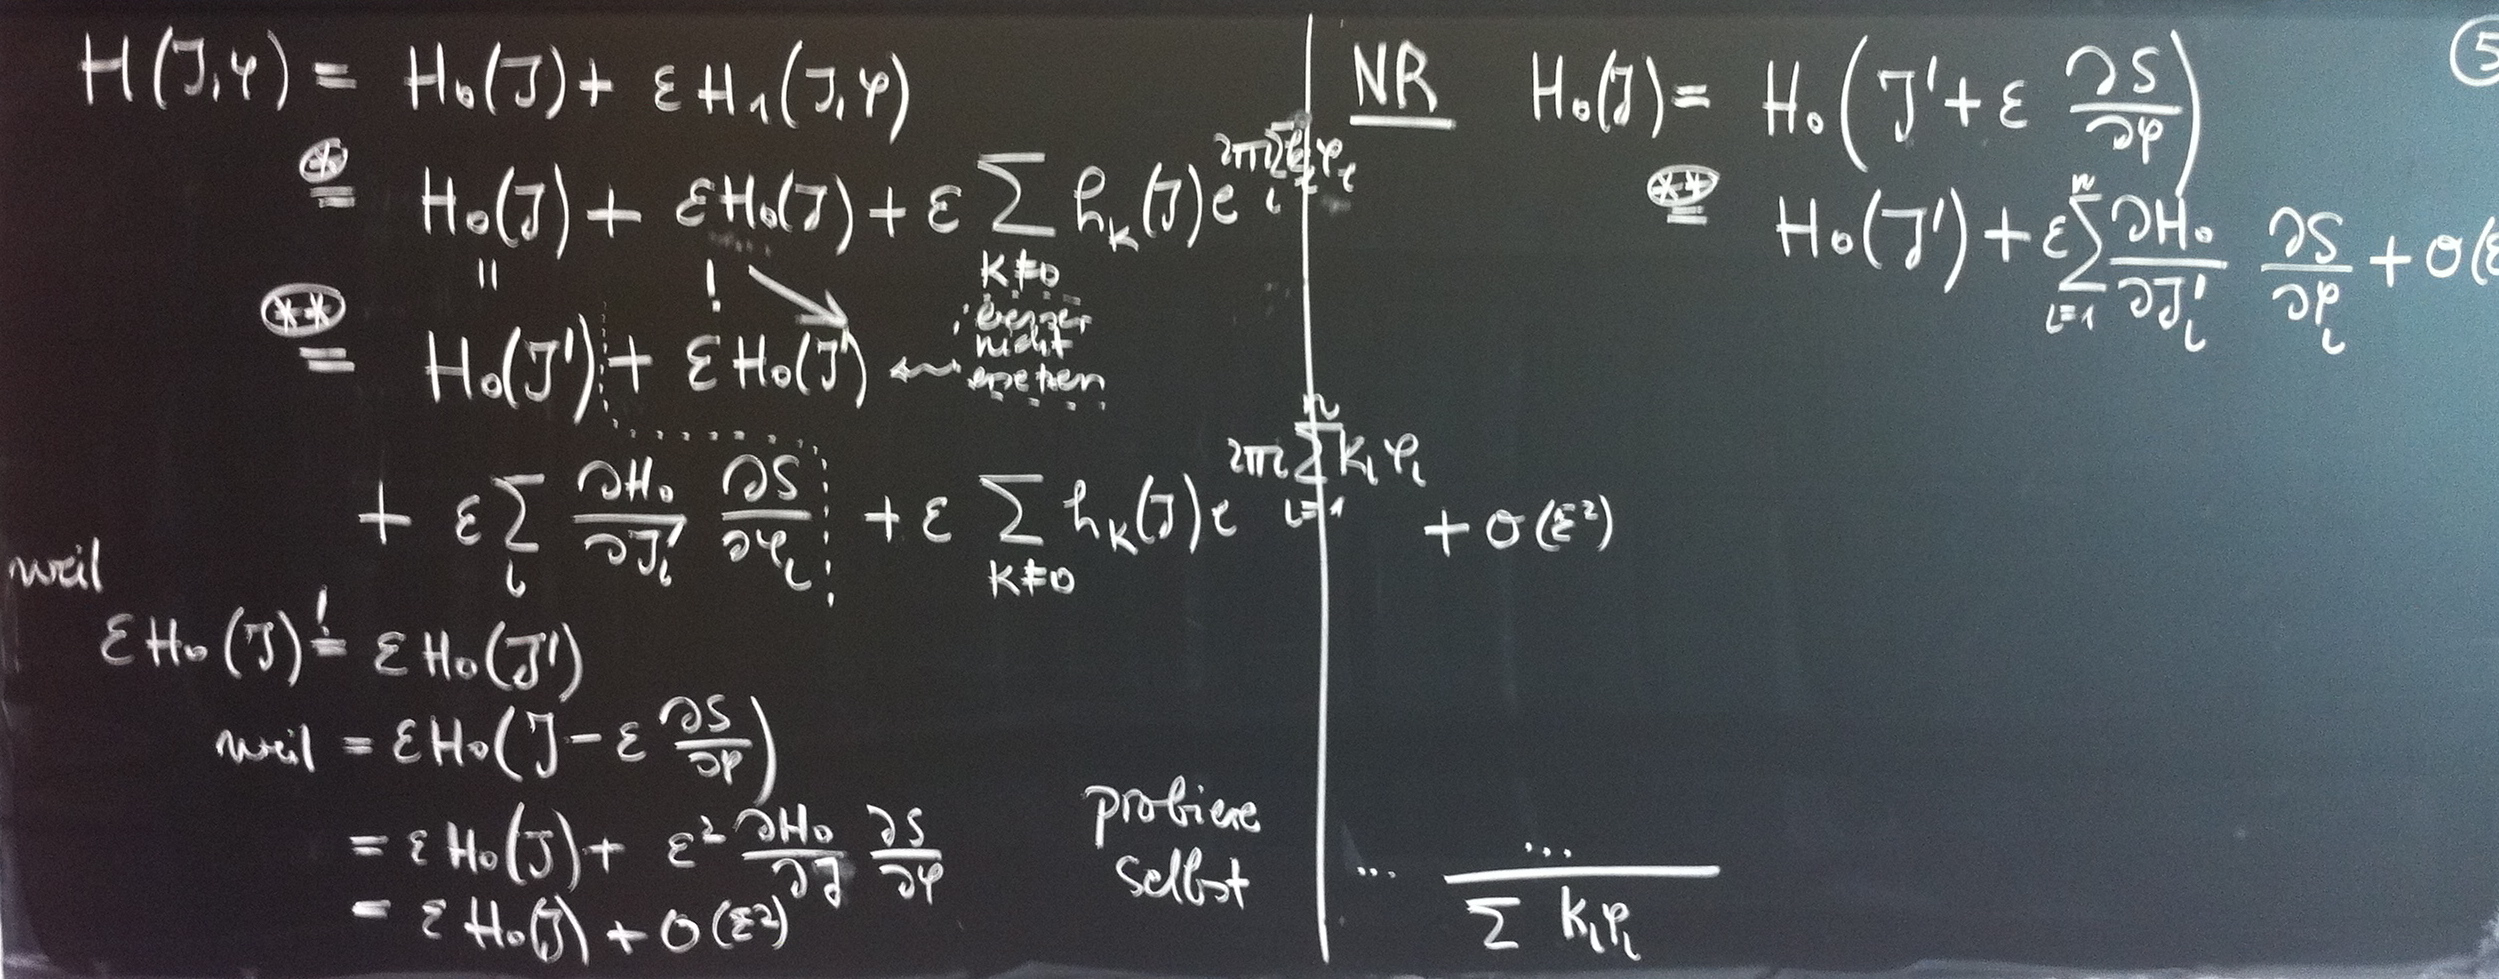 H(J,φ) = H₀(J) + ε H₁(J,φ)
⊛ = H₀(J) + ε H₀(J) + ε ∑_{k≠0} h_k(J) e^{2πi ∑_i k_i φ_i}
" !
(**) = H₀(J') + ε H₀(J') ← besser nicht ersetzen
+ ε ∑_i ∂H₀/∂J'_i ∂S/∂φ_i + ε ∑_{k≠0} h_k(J) e^{2πi ∑_{i=1}^n k_i φ_i} + O(ε²)
weil
ε H₀(J) =! ε H₀(J')
weil = ε H₀(J - ε ∂S/∂φ)
= ε H₀(J) + ε² ∂H₀/∂J ∂S/∂φ
= ε H₀(J) + O(ε²)
probiere
selbst
NR H₀(J) = H₀(J' + ε ∂S/∂φ)
(**) = H₀(J') + ε ∑_{i=1}^n ∂H₀/∂J'_i ∂S/∂φ_i + O(ε
... .../∑ k_i φ_i
⑤